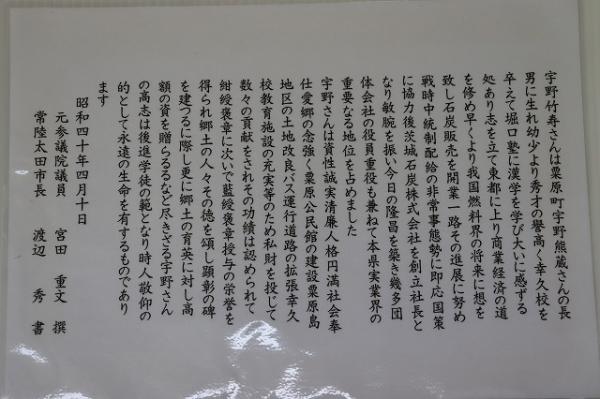 宇野竹寿さんは粟原町宇野熊蔵さんの長
男に生れ幼少より秀才の誉高く幸久校を
卒えて堀口塾に漢学を学び大いに感ずる
処あり志を立て東都に上り商業経済の道
を修め早くより我国燃料界の将来に想を
致し石炭販売を開業一路その進展に努め
戦時中統制配給の非常事態勢に即応国策
に協力後茨城石炭株式会社を創立社長と
なり敏腕を振い今日の隆昌を築き幾多団
体会社の役員重役も兼ねて本県実業界の
重要なる地位を占めました
宇野さんは資性誠実清廉人格円満社会奉
仕愛郷の念強く粟原公民館の建設粟原島
地区の土地改良バス運行道路の拡張幸久
校教育施設の充実等のため私財を投じて
数々の貢献をされその功績は認められて
紺綬褒章に次いで藍綬褒章授与の栄誉を
得られ郷土の人々その徳を頌し顕彰の碑
を建つるに際し更に郷土の育英に対し高
額の資を贈らるるなど尽きざる宇野さん
の高志は後進学徒の範となり時人敬仰の
的として永遠の生命を有するものであり
ます
昭和四十年四月十日
元参議院議員 宮田 重文 撰
常陸太田市長 渡辺 秀 書